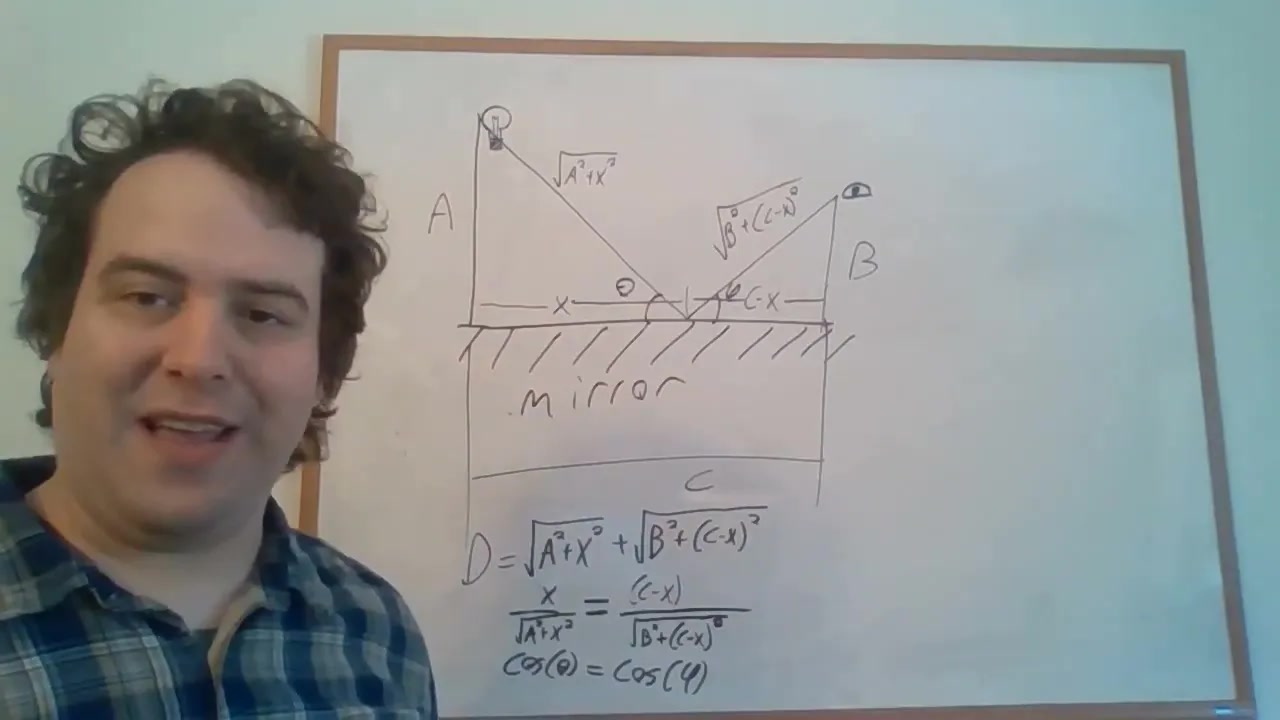 √A²+x²
√B²+(C-x)²
A
B
θ
φ
x
C-x
mirror
C
D = √A²+x² + √B²+(C-x)²
x/√A²+x² = (C-x)/√B²+(C-x)²
cos(θ) = cos(φ)